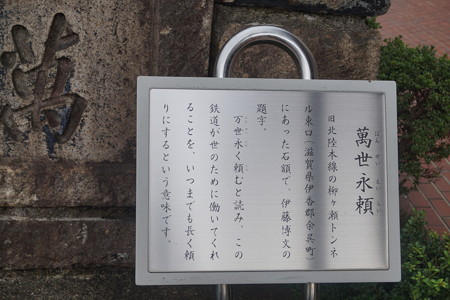 萬
萬世永頼
ばんせいえいらい
旧北陸本線の柳ヶ瀬トンネ
ル東口（滋賀県伊香郡余呉町）
にあった石額で、伊藤博文の
題字。
万世永く頼むと読み、この
鉄道が世のために働いてくれ
ることを、いつまでも長く頼
りにするという意味です。